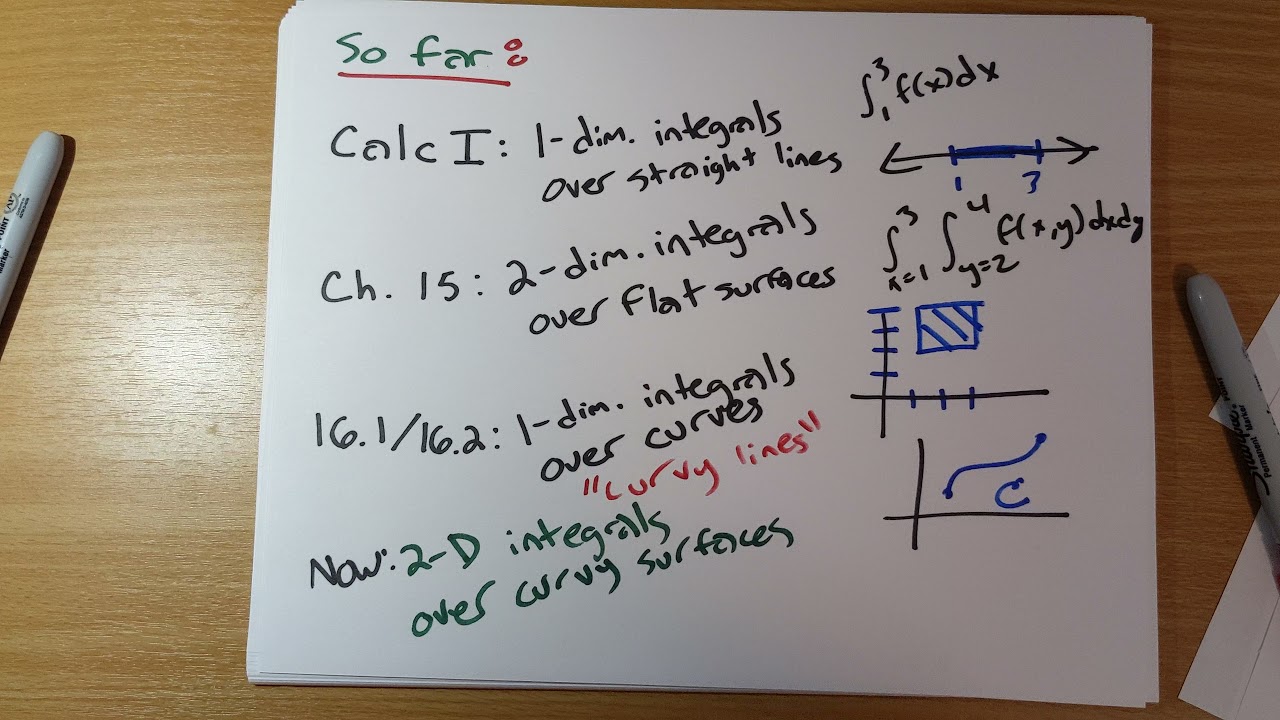 So far:
∫₁³ f(x)dx
Calc I: 1-dim. integrals
over straight lines
1 3
∫³ₓ₌₁ ∫⁴ y=2 f(x,y)dxdy
Ch. 15: 2-dim. integrals
over flat surfaces
16.1/16.2: 1-dim. integrals
over curves
"curvy lines"
C
Now: 2-D integrals
over curvy surfaces
Sharpie
Permanent Marker